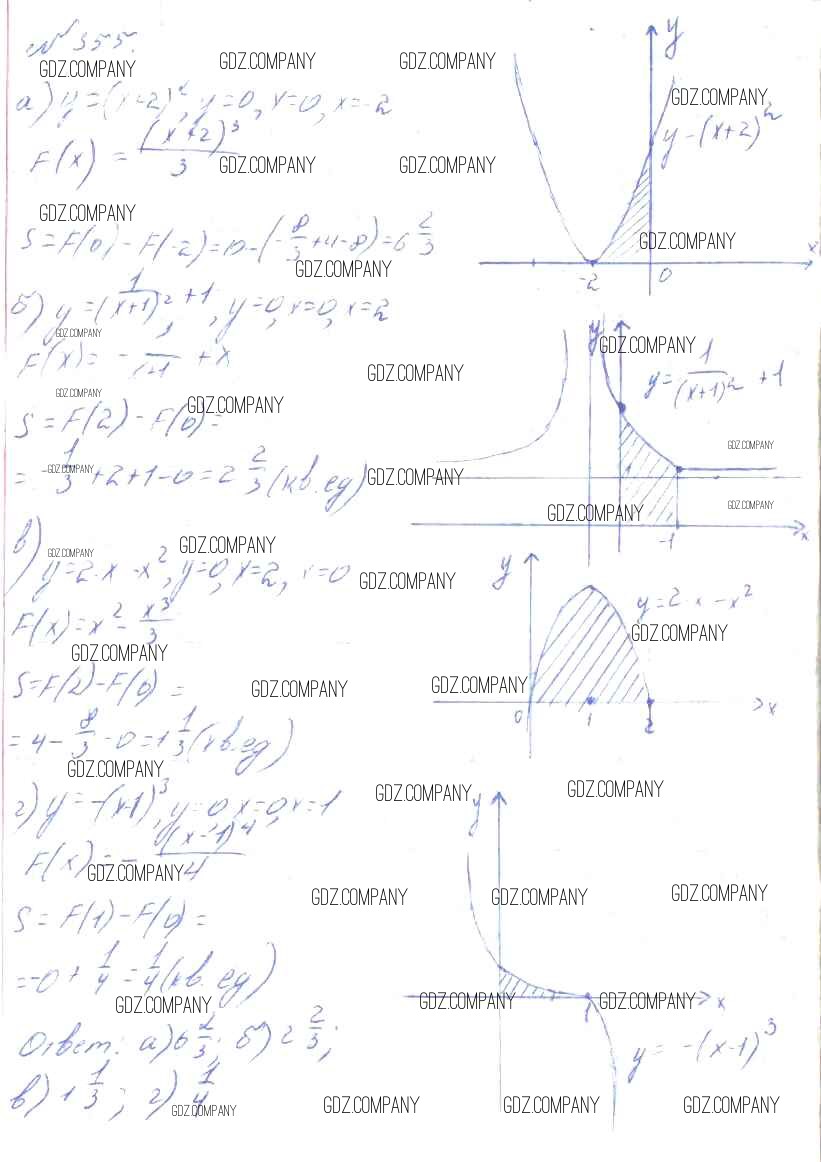 № 355.
GDZ.COMPANY GDZ.COMPANY GDZ.COMPANY
y
а) y=(x+2)², y=0, x=0, x=-2
GDZ.COMPANY
y=(x+2)²
F(x) = (x+2)³/3
GDZ.COMPANY GDZ.COMPANY
GDZ.COMPANY
S=F(0)-F(-2)=0-(-8/3+4-8)=6 2/3
GDZ.COMPANY
x
GDZ.COMPANY
-2 0
б) y=1/(x+1)²+1, y=0, x=0, x=2
GDZ.COMPANY
y GDZ.COMPANY
F(x)= - 1/x+1 + x
GDZ.COMPANY
y=1/(x+1)² +1
GDZ.COMPANY GDZ.COMPANY
S=F(2)-F(0)=
GDZ.COMPANY
= -1/3+2+1-0=2 2/3 (кв.ед)
GDZ.COMPANY GDZ.COMPANY
GDZ.COMPANY GDZ.COMPANY
-1 x
в) GDZ.COMPANY GDZ.COMPANY
y=2·x-x², y=0, x=2, x=0
GDZ.COMPANY
y
y=2x-x²
F(x)=x²-x³/3
GDZ.COMPANY GDZ.COMPANY
S=F(2)-F(0)=
GDZ.COMPANY GDZ.COMPANY
0 1 2 x
=4-8/3-0=1 1/3 (кв.ед)
GDZ.COMPANY GDZ.COMPANY GDZ.COMPANY
г) y=-(x-1)³, y=0, x=0, x=1
y
F(x)=-(x-1)⁴/4
GDZ.COMPANY
GDZ.COMPANY GDZ.COMPANY GDZ.COMPANY
S=F(1)-F(0)=
=-0+1/4=1/4 (кв.ед)
GDZ.COMPANY GDZ.COMPANY GDZ.COMPANY
1 x
Ответ: а) 6 2/3; б) 2 2/3;
y=-(x-1)³
в) 1 1/3; г) 1/4
GDZ.COMPANY GDZ.COMPANY GDZ.COMPANY GDZ.COMPANY